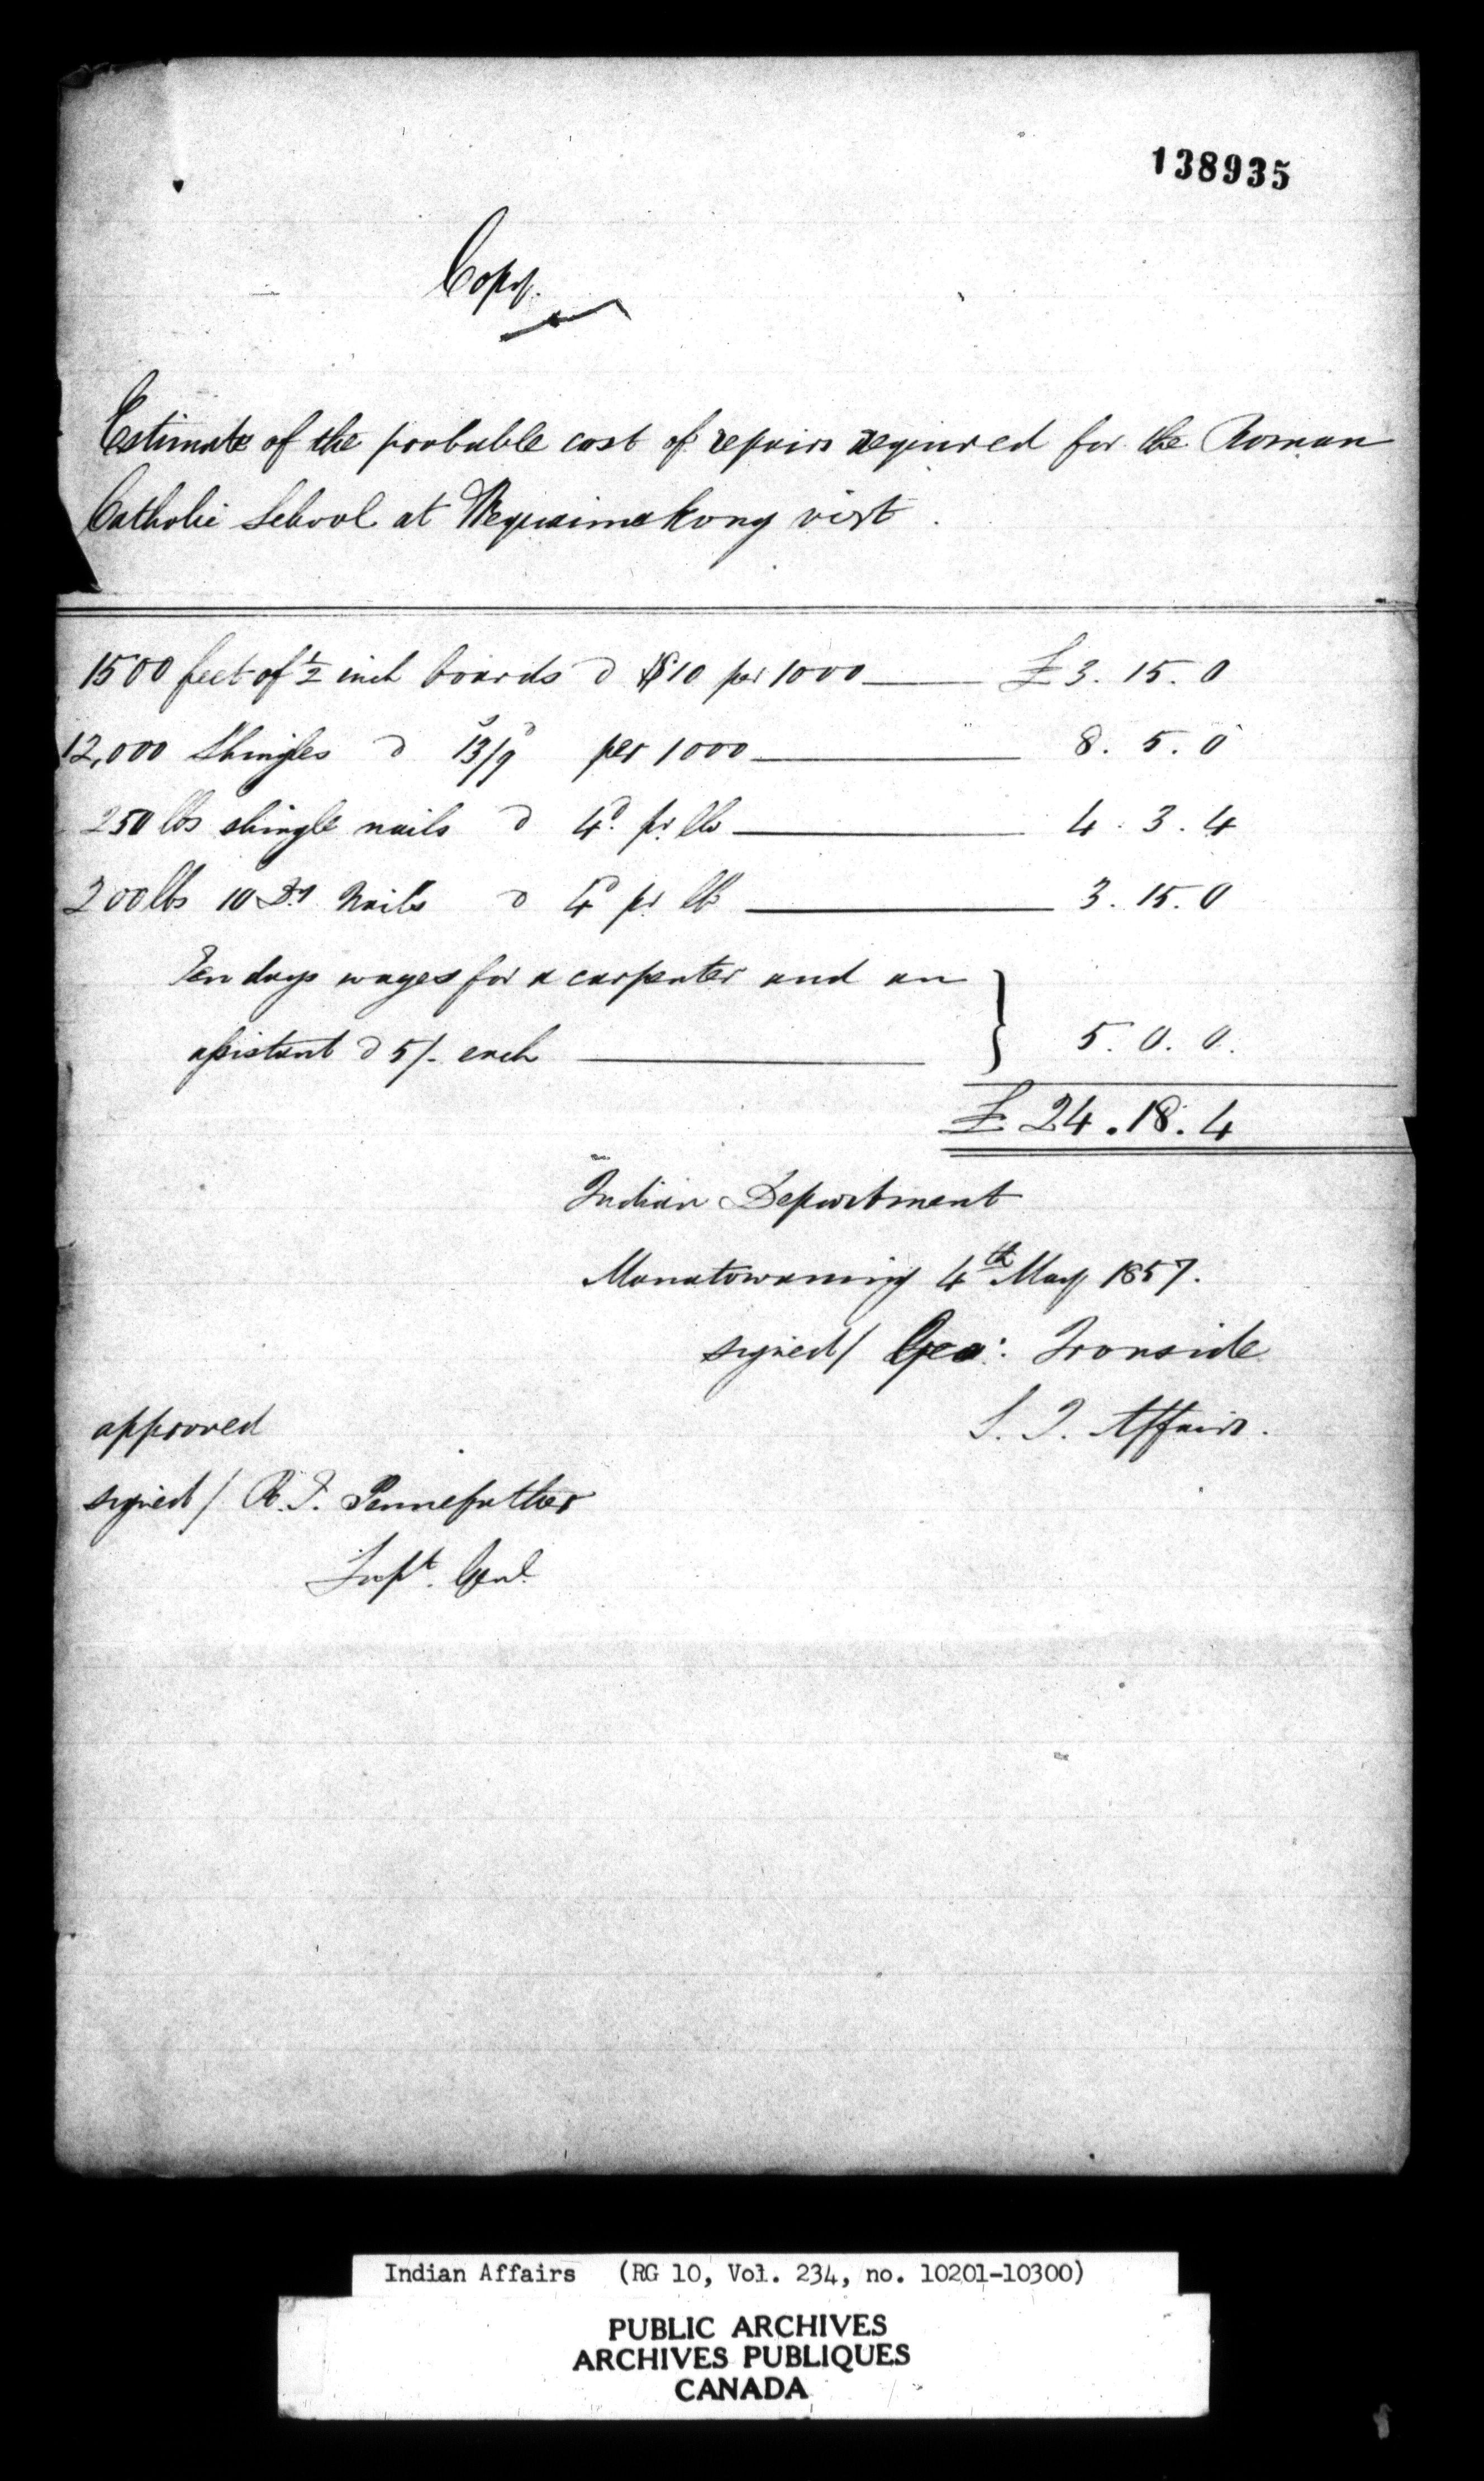 138935
Copy.
Estimate of the probable cost of repairs required for the Roman
Catholic School at Wequaimakong vizt.
1500 feet of ½ inch boards @ $10 per 1000 £3. 15. 0
12,000 Shingles @ 13/9 per 1000 8. 5. 0
250 lbs shingle nails @ 4d. pr lb 4. 3. 4
200 lbs 10 Dy Nails @ 4d pr lb 3. 15. 0
Ten days wages for a carpenter and an
assistant @ 5/- each 5. 0. 0.
£24. 18. 4
Indian Department
Manatowaning 4th May 1857.
signed/ Geo: Ironside
S. I. Affairs.
approved
signed/ R. T. Pennefather
Supt. Genl.
Indian Affairs (RG 10, Vol. 234, no. 10201-10300)
PUBLIC ARCHIVES
ARCHIVES PUBLIQUES
CANADA